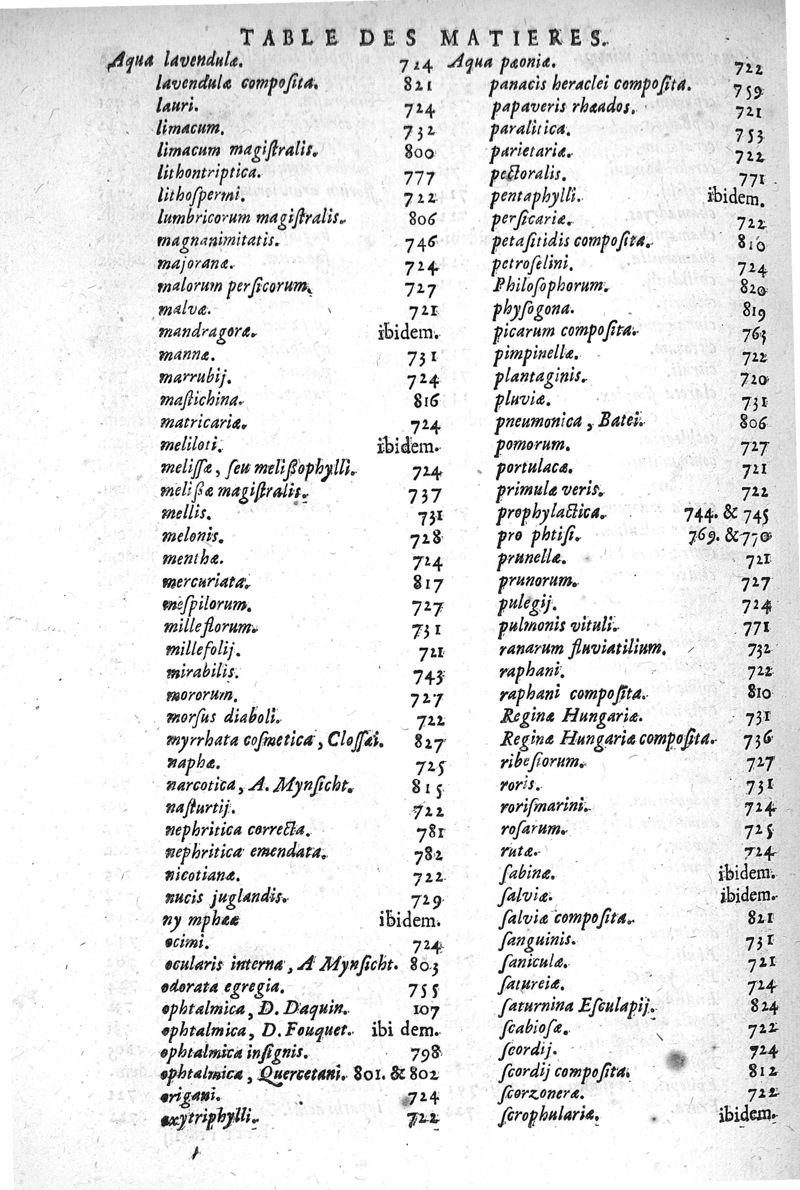 TABLE DES MATIERES.
Aqua lavendulæ. 724
lavendulæ compoſita. 821
lauri. 724
limacum. 732
limacum magiſtralis. 800
lithontriptica. 777
lithoſpermi. 722
lumbricorum magiſtralis. 806
magnanimitatis. 746
majoranæ. 724
malorum perſicorum. 727
malvæ. 721
mandragoræ. ibidem.
mannæ. 731
marrubij. 724
maſtichina. 816
matricariæ. 724
meliloti. ibidem.
meliſſæ, ſeu melißophylli. 724
melißæ magiſtralis. 737
mellis. 731
melonis. 728
menthæ. 724
mercuriata. 817
meſpilorum. 727
milleflorum. 731
millefolij. 721
mirabilis. 743
mororum. 727
morſus diaboli. 722
myrrhata coſmetica, Cloſſæi. 827
naphæ. 725
narcotica, A. Mynſicht. 815
naſturtij. 722
nephritica correcta. 781
nephritica emendata. 782
nicotianæ. 722
nucis juglandis. 729
ny mphææ ibidem.
ocimi. 724
ocularis interna, A Mynſicht. 803
odorata egregia. 755
ophtalmica, D. Daquin. 107
ophtalmica, D. Fouquet. ibi dem.
ophtalmica inſignis. 798
ophtalmica, Quercetani. 801. & 802
origani. 724
oxytriphylli. 722
Aqua pæoniæ. 722
panacis heraclei compoſita. 759
papaveris rhæados. 721
paralitica. 753
parietariæ. 722
pectoralis. 771
pentaphylli. ibidem.
perſicariæ. 722
petaſitidis compoſita. 810
petroſelini. 724
Philoſophorum. 820
phyſogona. 819
picarum compoſita. 763
pimpinellæ. 722
plantaginis. 720
pluviæ. 731
pneumonica, Batei. 806
pomorum. 727
portulacæ. 721
primulæ veris. 722
prophylactica. 744. & 745
pro phtiſi. 769. & 770
prunellæ. 721
prunorum. 727
pulegij. 724
pulmonis vituli. 771
ranarum fluviatilium. 732
raphani. 722
raphani compoſita. 810
Reginæ Hungariæ. 731
Reginæ Hungariæ compoſita. 736
ribeſiorum. 727
roris. 731
roriſmarini. 724
roſarum. 725
rutæ. 724
ſabinæ. ibidem.
ſalviæ. ibidem.
ſalviæ compoſita. 821
ſanguinis. 731
ſaniculæ. 721
ſatureiæ. 724
ſaturnina Eſculapij. 824
ſcabioſæ. 722
ſcordij. 724
ſcordij compoſita. 812
ſcorzoneræ. 722
ſcrophulariæ. ibidem.